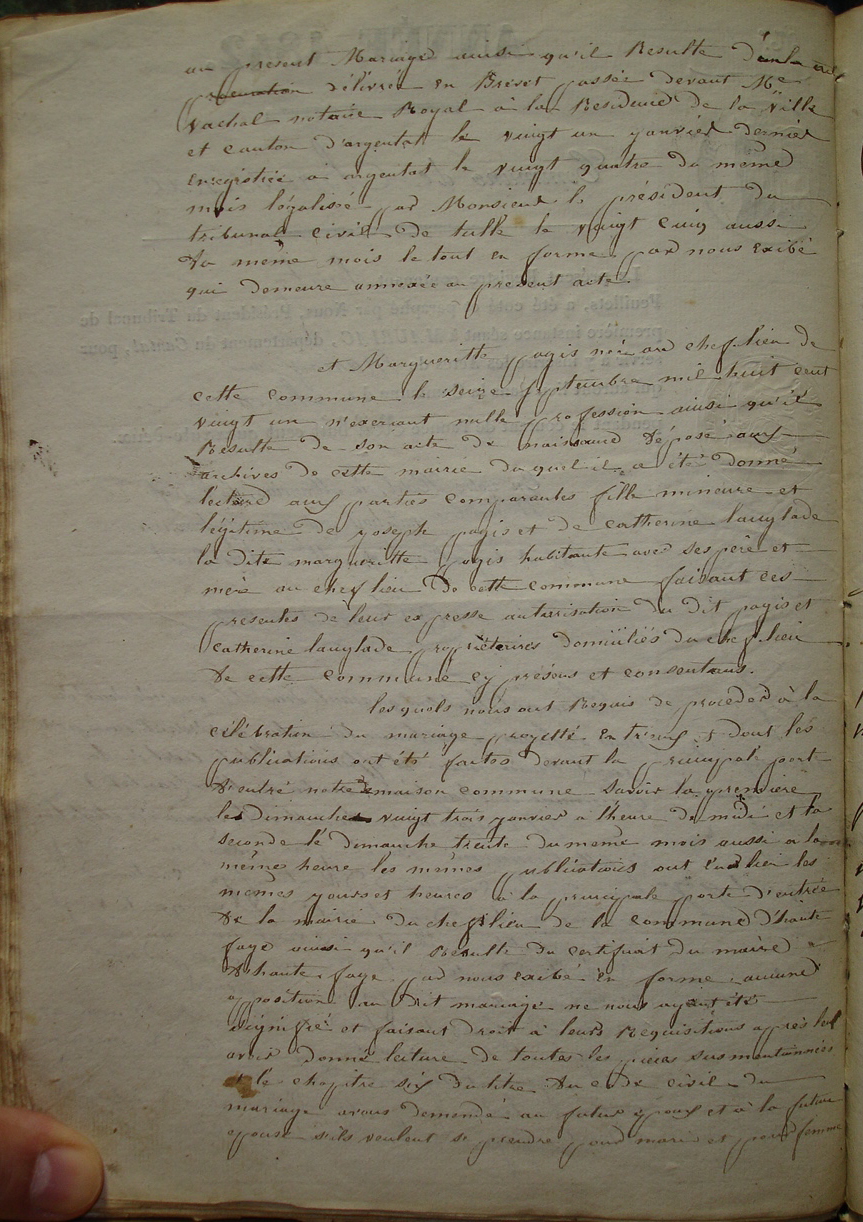 au present Mariage ainsi qu'il Resulte d'un
procuration délivrée en Brevet passée devant Me
vachal notaire Royal à la Residence de la ville
et canton d'argentat le vingt un yanvier dernier
enregistrée à argentat le vingt quatre du même
mois légalisée par Monsieur le président du
tribunal civil de tulle le vingt cinq aussi
du même mois le tout en forme par nous exibé
qui demeure annexée au present acte.
et Margueritte pagis née au chef lieu de
cette commune le seize septembre mil huit cent
vingt un n'exercant nulle profession ainsi qu'il
Resulte de son acte de naissance déposé aux
archives de cette mairie duquel il a été donné
lecture aux parties comparantes fille mineure et
légitime de yoseph pagis et de catherine lauglade
la dite margueritte pagis habitante avec ses père et
mère au chef lieu de cette commune faisant ces
presentes de leur expresse autorisation du dit pagis et
catherine lauglade propriétaires domiciliés du chef lieu
de cette commune cy présens et consentans.
lesquels nous ont Requis de proceder à la
célébration du mariage proyetté entreux et dont les
publications ont été faites devant la principale porte
d'entré notre maison commune savoir la première
le Dimanche vingt trois yanvier a l'heure de midi et la
seconde le dimanche trente du meme mois aussi a la
même heure les mêmes publications ont eu lieu les
memes yours et heures à la principale porte d'entrée
de la mairie du chef lieu de la commune d'haute
fage ainsi qu'il Resulte du certificat du maire
d'haute fage par nous exibé en forme aucune
opposition au dit mariage ne nous ayant été
signifié et faisant droit à leurs Requisitions après
avoir donné lecture de toutes les pièces sus mentionnées
et le chapitre six du titre du code civil du
mariage avons demandé au futur epoux et à la future
epouse s'ils veulent se prendre pour mari et pour femme